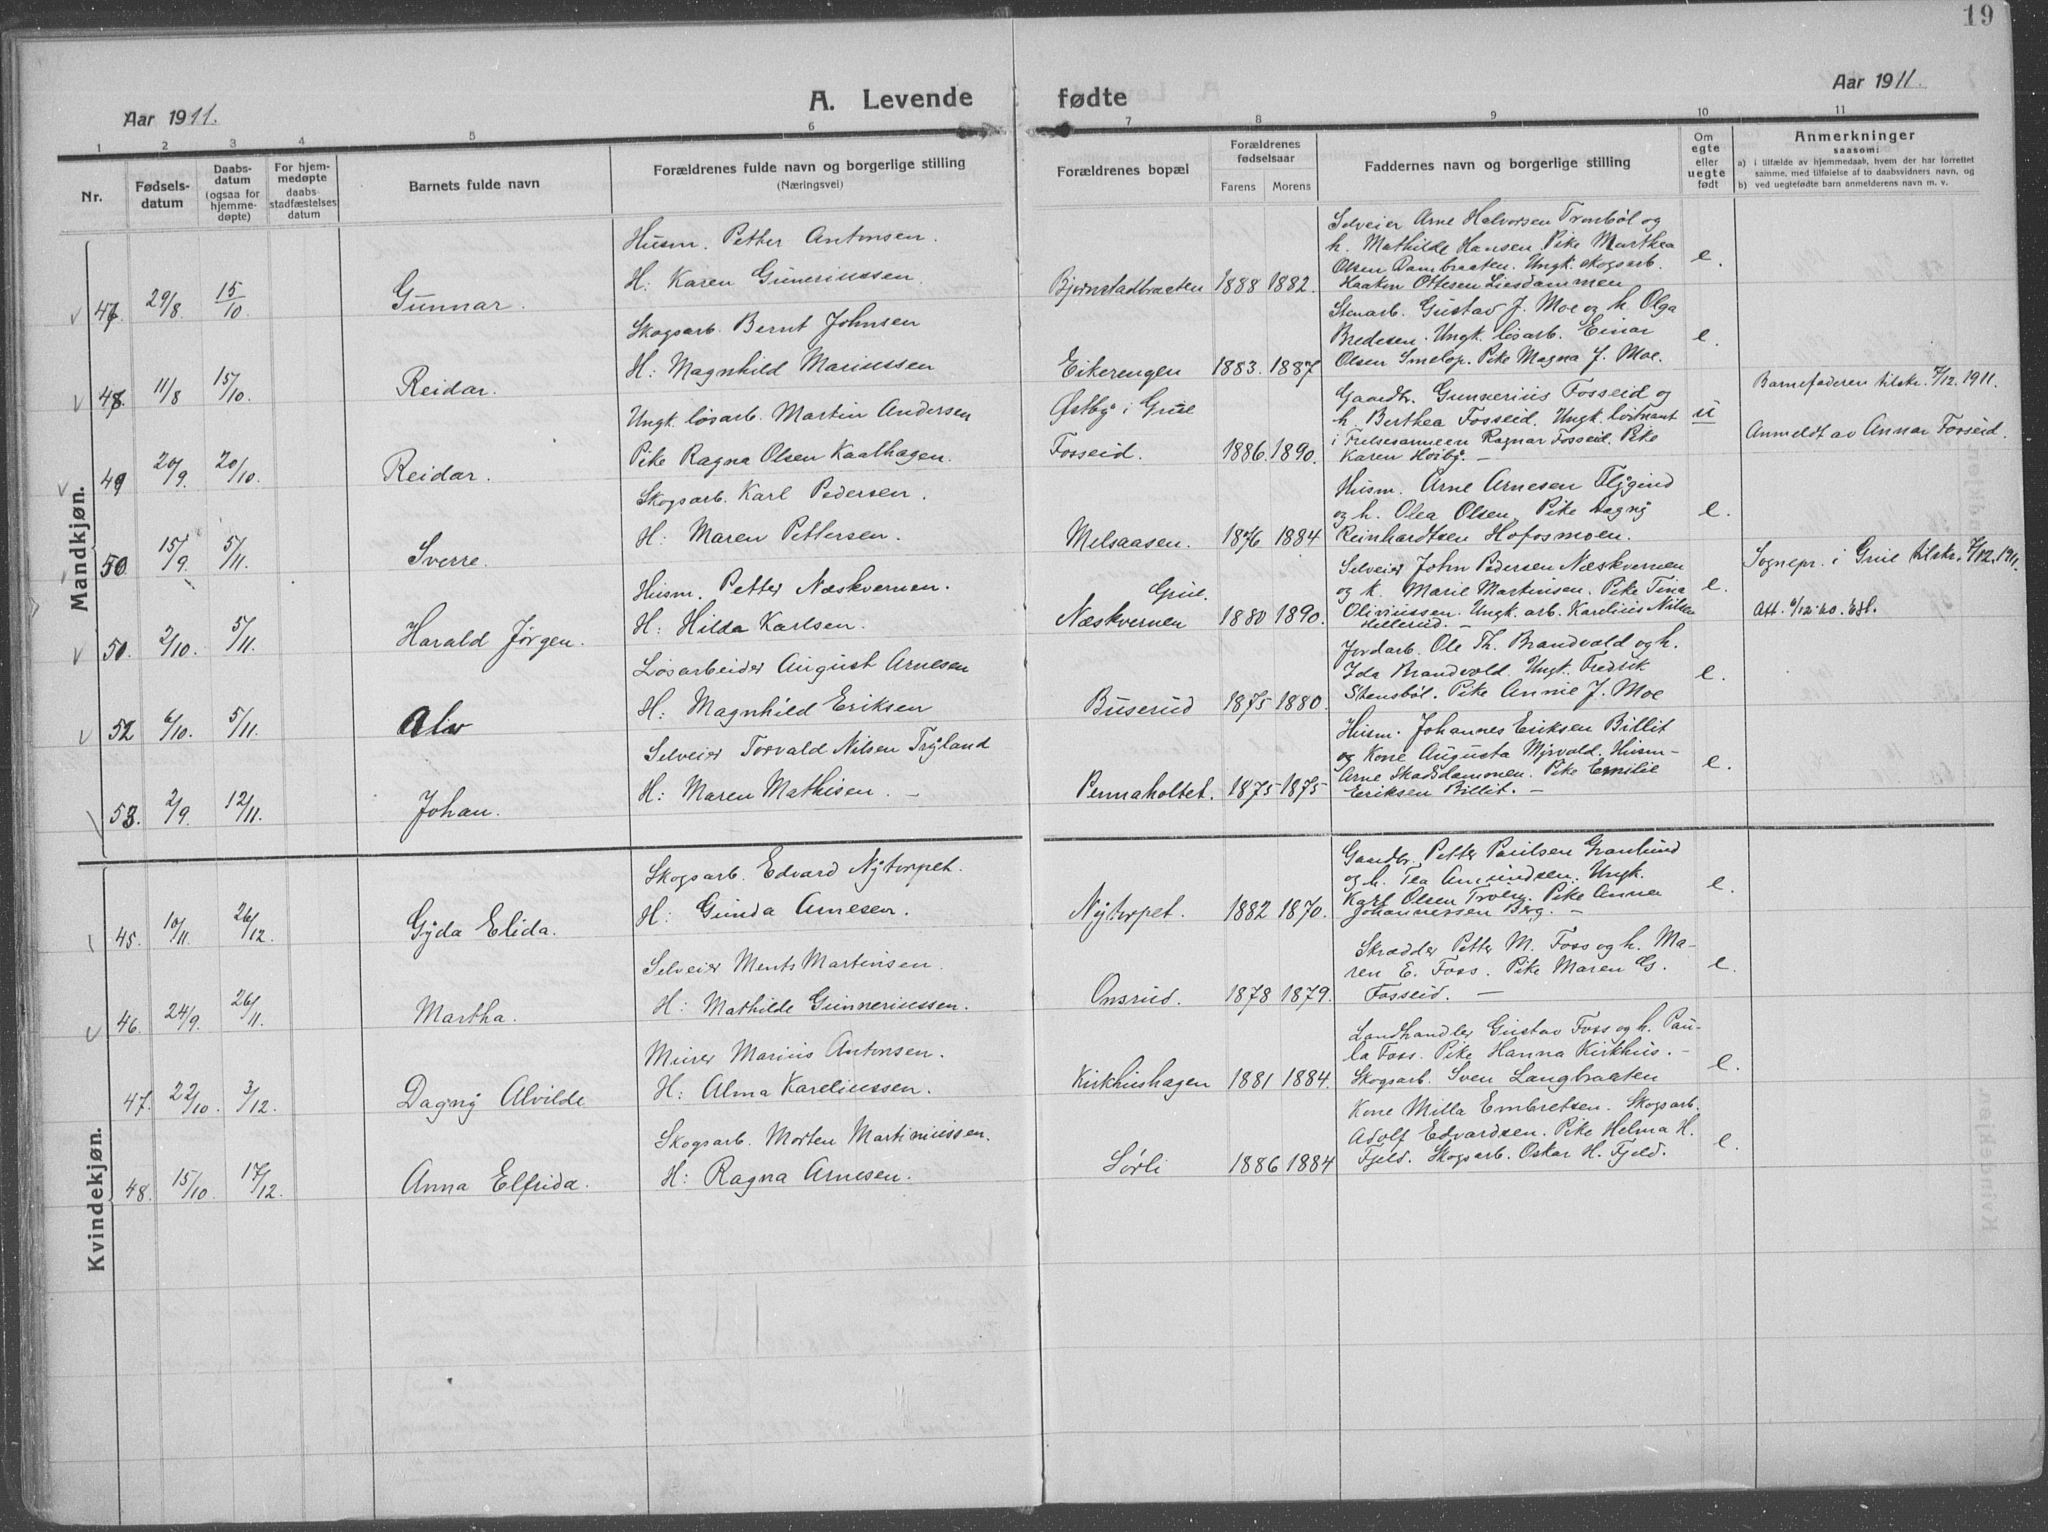 19
Aar 1911.
A. Levende fødte
Aar 1911.
1 2 3 4 5 6 7 8 9 10 11
Nr.
Fødsels-
datum
Daabs-
datum
(ogsaa for
hjemme-
døpte)
For hjem-
medøpte
daabs-
stadfæstelses
datum
Barnets fulde navn
Forældrenes fulde navn og borgerlige stilling
(Næringsvei)
Forældrenes bopæl
Forældrenes
fødselsaar
Farens Morens
Faddernes navn og borgerlige stilling
Om
egte
eller
uegte
født
Anmerkninger
saasom:
a) i tilfælde av hjemmedaab, hvem der har forrettet
samme, med tilføielse af to daabsvidners navn, og
b) ved uegtefødte barn anmelderens navn m. v.
Mandkjøn.
47. 29/8 15/10 Gunnar.
Husm. Petter Antonsen.
H: Karen Guneriussen.
Bjørnstadbraaten 1888 1882.
Selveier Arne Halvorsen Tronbøl og
h. Mathilde Hansen. Pike Marthea
Olsen Dambraaten. Ungk. skogsarb.
Haakon Ottesen Liesdammen
e.
48. 11/8 15/10. Reidar.
Skogsarb. Bernt Johnsen
H: Magnhild Mariussen
Eikerengen 1883. 1887
Stenarb. Gustav J. Moe og h. Olga
Bredesen. Ungk. løsarb. Einar
Olsen Smelop. Pike Magna J. Moe.
e.
49 20/9. 20/10. Reidar.
Ungk. løsarb. Martin Andersen
Pike Ragna Olsen Kaalhagen.
Østby i Grue
Fosseid. 1886. 1890.
Gaardbr. Gunnerius Fosseid og
h. Berthea Fosseid. Ungk. løitnant
i Frelsesarmeen Ragnar Fosseid. Pike
Karen Høiby. —
u
Barnefaderen tilskr. 7/12. 1911.
Anmeldt av Annar Fosseid.
50 15/9. 5/11. Sverre.
Skogsarb. Karl Pedersen.
H: Maren Pettersen.
Melsaasen. 1876 1884
Husm. Arne Arnesen Flygind
og h. Olea Olsen. Pike Dagny
Reinhardtsen Hofosmoen.
e.
50. 2/10. 5/11. Harald Jørgen.
Husm. Petter Næskvernen.
H: Hilda Karlsen.
Grue.
Næskvernen 1880 1890.
Selveier John Pedersen Næskvernen
og k. Marie Martinsen. Pike Tina
Oliviussen. Ungk. arb. Karelius Nilsen
Hillerud. —
e.
Sognepr. i Grue tilskr. 7/12. 1911.
Att. 6/12.40. Edl.
52 6/10. 5/11. Alv
Løsarbeider August Arnesen
H: Magnhild Eriksen
Buserud 1875 1880.
Jordarb. Ole Th. Brandvold og h.
Ida Brandvold. Ungk. Fredrik
Stensbøl. Pike Annie J. Moe
e.
53. 2/9. 12/11. Johan.
Selveier Torvald Nilsen Tryland
H: Maren Mathisen. —
Pennaholtet. 1875 1875
Husm. Johannes Eriksen Billit
og Kone Augusta Myrvold. Husm-
Arne Skadsdammen. Pike Emilie
Eriksen Billit. —
e.
Kvindekjøn.
45. 10/11. 26/12. Gyda Elida.
Skogsarb. Edvard Nytorpet.
H: Gunda Arnesen.
Nytorpet. 1882 1870.
Gaardbr. Petter Paulsen Granlund
og h. Tea Amundsen. Ungk.
Karl Olsen Troen. Pike Anna
Johannessen Berg. —
e.
46. 24/9. 26/11. Martha.
Selveier Ments Martinsen.
H: Mathilde Gunneriussen.
Onsrud. 1878 1879.
Skrædder Petter M. Foss og h. Ma-
ren E. Foss. Pike Maren G.
Fosseid. —
e.
47. 22/10. 3/12. Dagny Alvilde
Murer Marius Antonsen.
H: Alma Kareliussen.
Kirkhushagen 1881 1884.
Landhandler Gustav Foss og h. Pau-
la Foss. Pike Hanna Kirkhus. —
Skogsarb. Sven Langbraaten
e.
48. 15/10. 17/12. Anna Elfrida.
Skogsarb. Morten Martiniussen.
H: Ragna Arnesen.
Sørli 1886 1884
Kone Milla Embretsen. Skogsarb.
Adolf Edvardsen. Pike Helma H.
Fjeld. Skogsarb. Oskar H. Fjeld.
e.